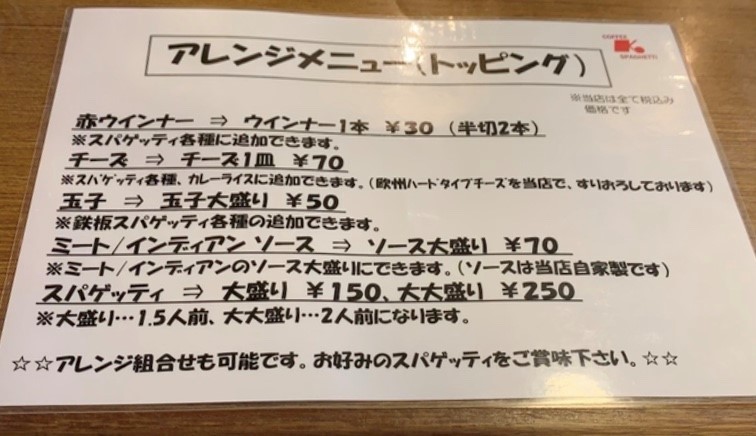 COFFEE
SPAGHETTI
アレンジメニュー(トッピング)
※当店は全て税込み
価格です
赤ウインナー ⇒ ウインナー1本 ¥30 (半切2本)
※スパゲッティ各種に追加できます。
チーズ ⇒ チーズ1皿 ¥70
※スパゲッティ各種、カレーライスに追加できます。(欧州ハードタイプチーズを当店で、すりおろしております)
玉子 ⇒ 玉子大盛り ¥50
※鉄板スパゲッティ各種の追加できます。
ミート/インディアン ソース ⇒ ソース大盛り ¥70
※ミート/インディアンのソース大盛りにできます。(ソースは当店自家製です)
スパゲッティ ⇒ 大盛り ¥150、大大盛り ¥250
※大盛り…1.5人前、大大盛り…2人前になります。
☆☆アレンジ組合せも可能です。お好みのスパゲッティをご賞味下さい。☆☆